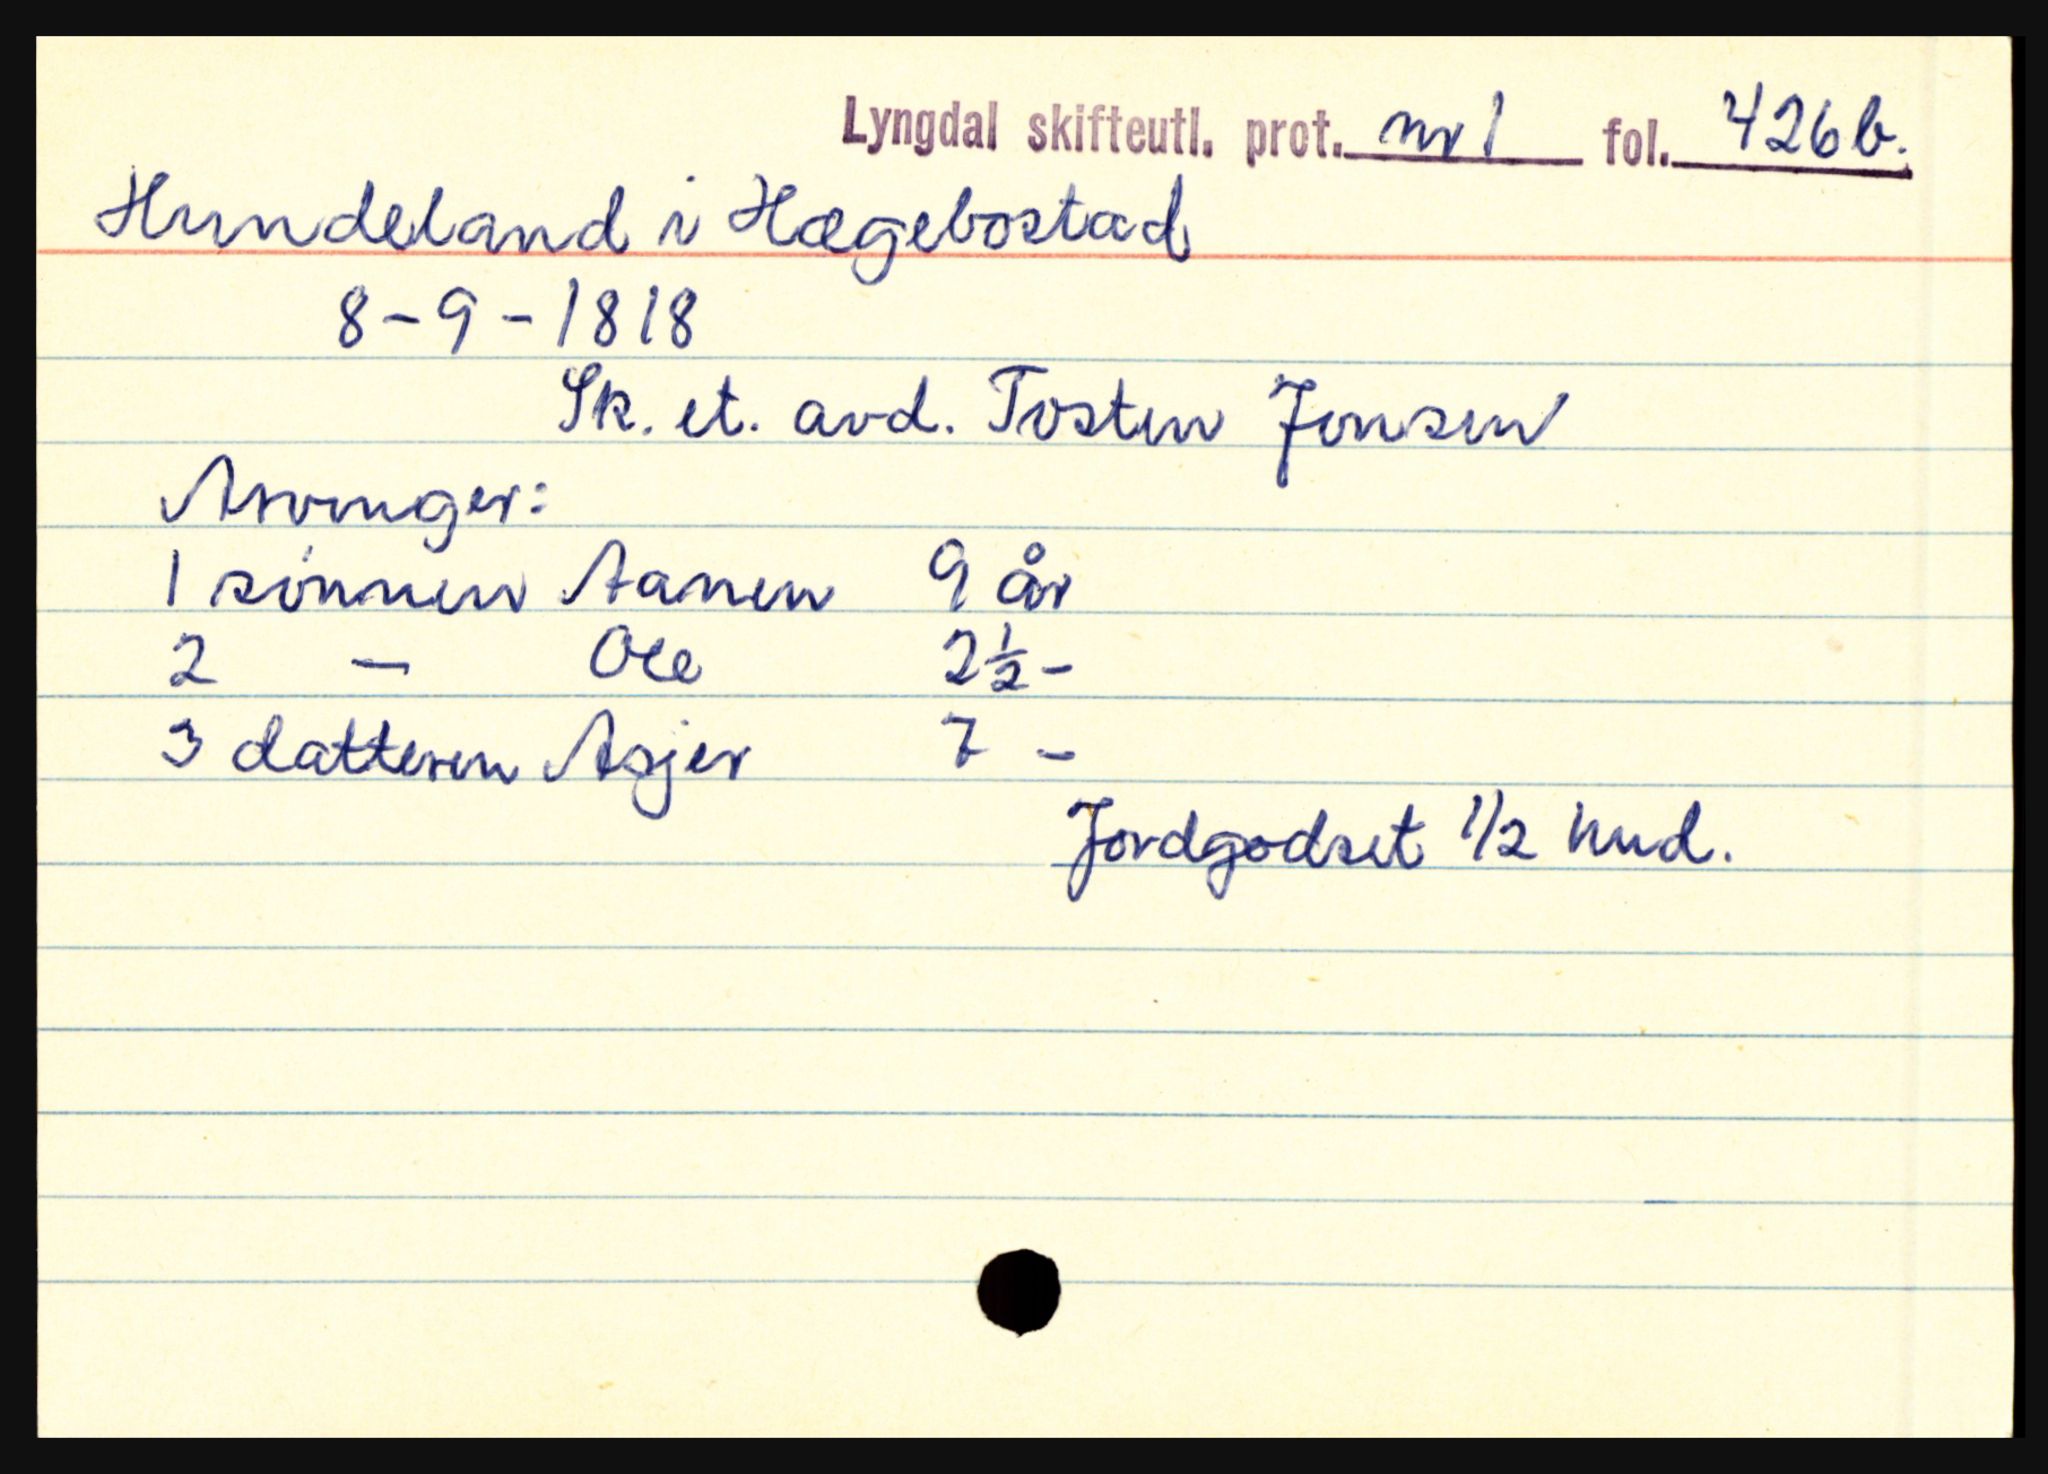 Lyngdal skifteutl. prot. nr 1 fol. 426b.
Hundeland i Hægebostad
8-9-1818
Sk. et. avd. Tosten Jonsen
Arvinger:
1 sønnen Aanen 9 år
2 — Ole 2½ -
3 datteren Asjer 7 -
Jordgodset 1/2 hud.